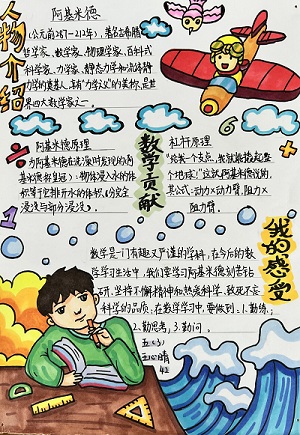 人物介绍
阿基米德
(公元前287-212年),著名古希腊
哲学家、数学家、物理学家、百科式
科学家、力学家、静态力学和流体静
力学的奠基人,享有"力学之父"的美称,是世
界四大数学家之一。
数学贡献
阿基米德原理
为阿基米德在洗澡时发现的(
物体浸入水的体
积等于它排开水的体积(分完全
浸没与部分浸没)。
杠杆原理
"给我一个支点,我就能撬起整
个地球!"这就阿基米德说的,
其公式:动力×动力臂,阻力×
阻力臂.
我的感受
数学是一门有趣又严谨的学科,在今后的数
学学习生活中,我们要学习阿基米德刻苦钻
研、坚持不懈精神和热爱科学、致死不忘
科学的品质,在数学学习中,要做到:1.勤练;
2.勤思考;3.勤问。
6
+
÷
1